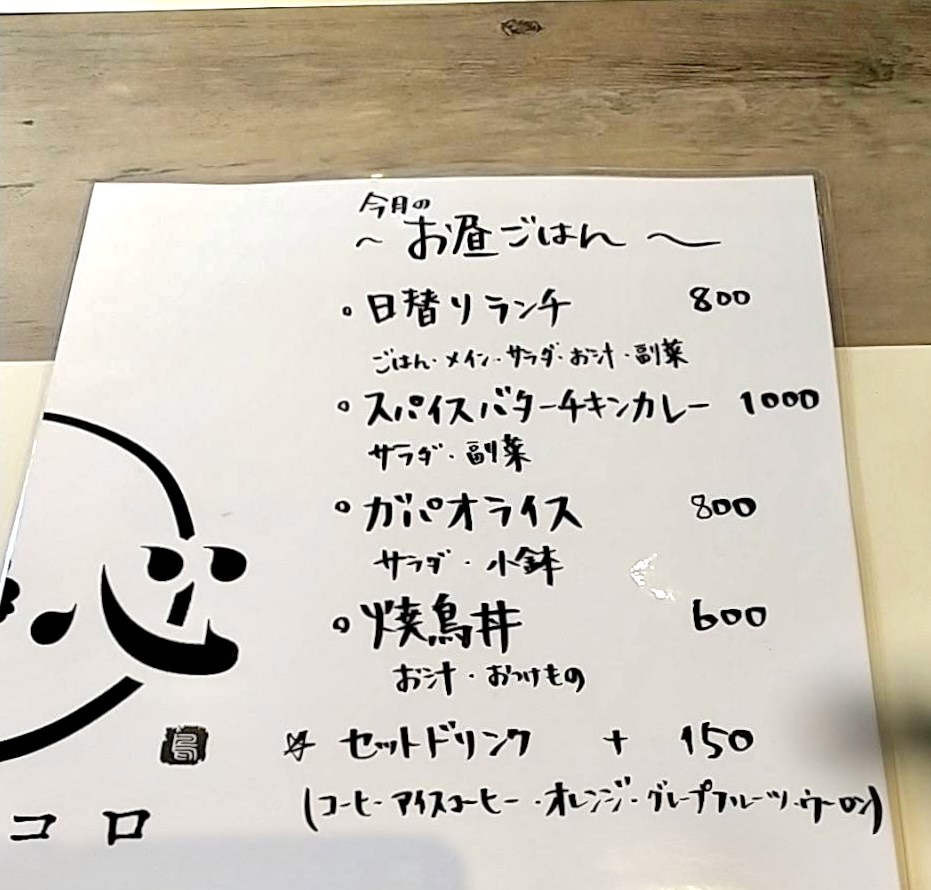 今月の
～お昼ごはん～
。日替りランチ 800
ごはん・メイン・サラダ・お汁・副菜
。スパイスバターチキンカレー 1000
サラダ・副菜
。ガパオライス 800
サラダ・小鉢
。焼鳥丼 600
お汁・おつけもの
☆ セットドリンク + 150
(コーヒー・アイスコーヒー・オレンジ・グレープフルーツ・ウーロン)
コロ